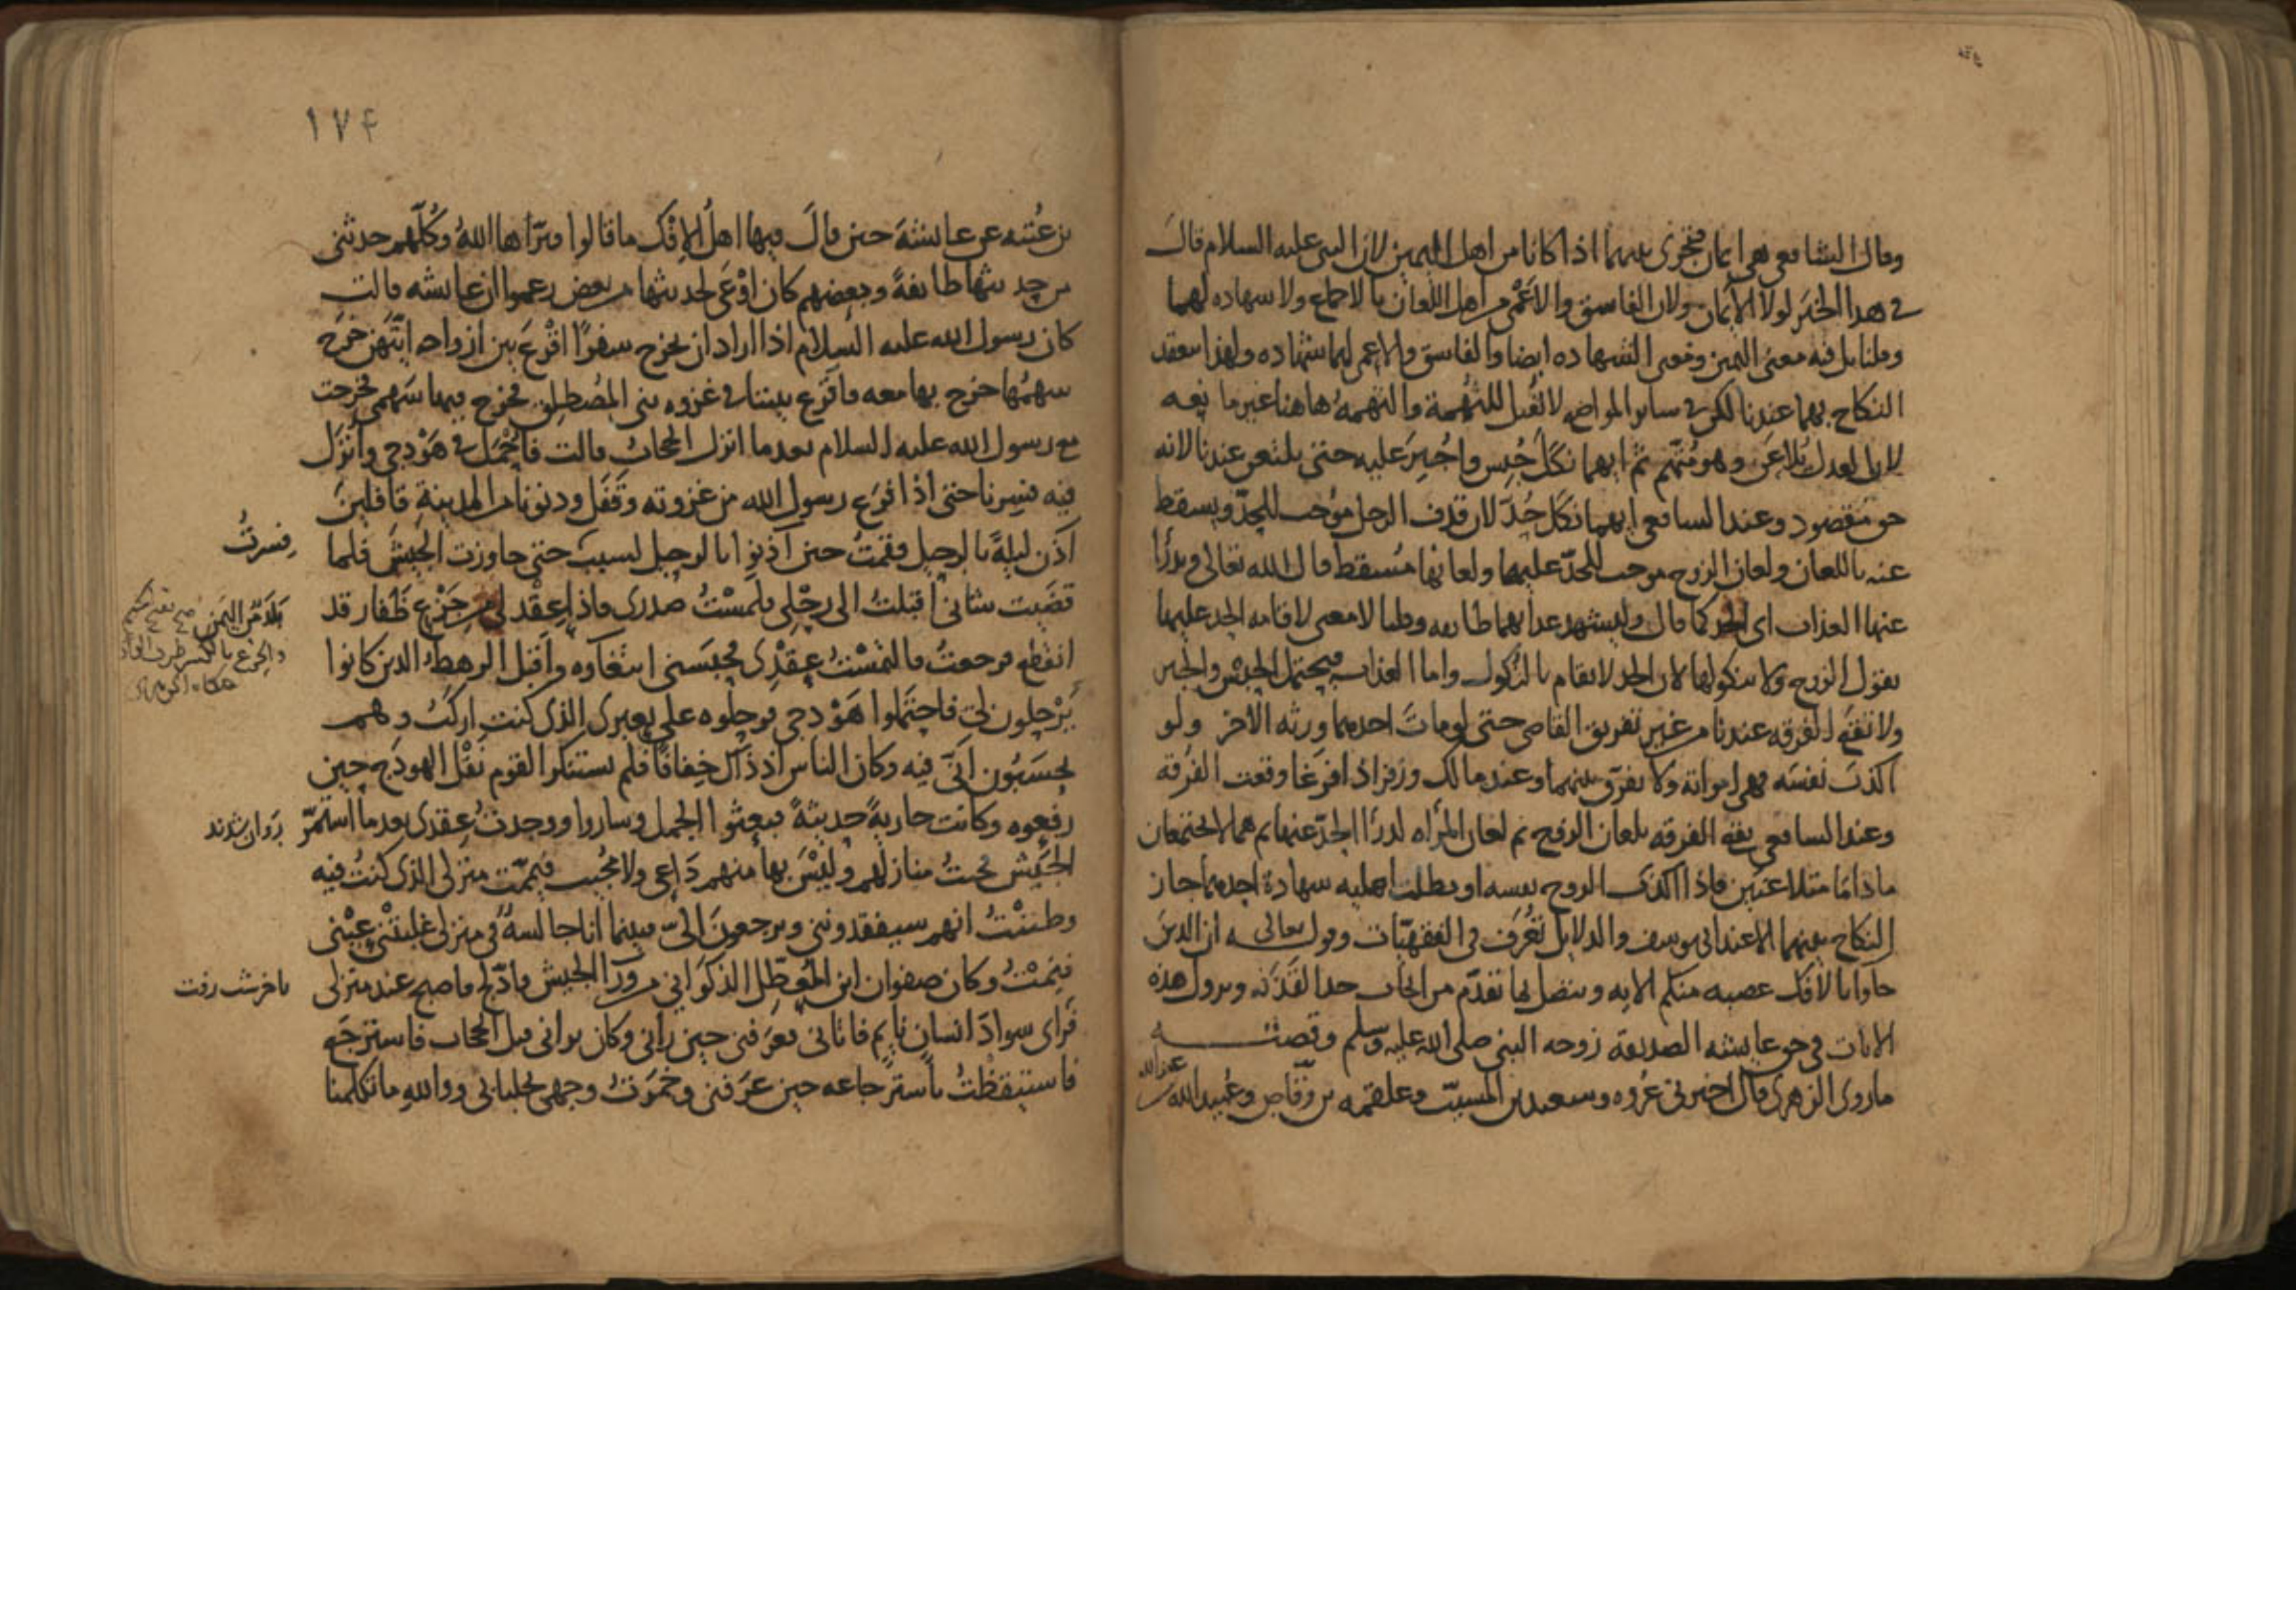 وقال الشافعي هي ايمان فتجزى بينهما اذا كانا من اهل اليمين لان النبي عليه السلام قال
في هذا الخبر لولا الأيمان ولان الفاسق والاعمى من اهل اللعان بالاجماع ولا شهاده لهما
وقلنا بل فيه معنى اليمين ومعنى الشهاده ايضا والفاسق والاعمى لهما شهاده ولهذا ينعقد
النكاح بهما عندنا لكن في ساير المواضع لا تقبل للتهمة والتهمة هاهنا غير مانعه
لان العدل يلاعن وهو متهم ثم ايهما نكل حبس واجبر عليه حتى يلتعن عندنا لانه
حق مقصود وعند الشافعي ايهما نكل حدّ لان قذف الرجل موجب للحدّ ويسقط
عنه باللعان ولعان الزوج موجب للحدّ عليها ولعانها مسقط قال الله تعالى ويدرأ
عنها العذاب اى الحد كما قال وليشهد عذابهما طايفه وقلنا لا معنى لاقامه الحد عليها
بقول الزوج ولا بنكولها لان الحد لا يقام بالنكول واما العذاب فيحتمل الحبس والجبر
ولا تقع الفرقه عندنا من غير تفريق القاضى حتى لو مات احدهما ورثه الآخر ولو
اكذب نفسه فهى امراته ولا يفرّق بينهما وعند مالك وزفر اذا فرغا وقعت الفرقه
وعند الشافعي يقع الفرقه بلعان الزوج ثم لعان المرأه لدرأ الحدّ عنها ثم هما لا يجتمعان
ما داما متلاعنين فاذا اكذب الزوج نفسه او بطلت اهليه شهادة احدهما جاز
النكاح بينهما الا عند ابى يوسف والدلايل تعرف في الفقهيّات وقوله تعالى ان الذين
جاوا بالافك عصبه منكم الايه ويتصل بما تقدّم من ايجاب حد القذف ونزول هذه
الايات في حق عايشه الصديقة زوجه النبي صلى الله عليه وسلم وقصته
ما روى الزهرى قال اخبرنى عروه وسعيد بن المسيّب وعلقمه بن وقّاص وعبيد الله بن
عبد الله
١٧۴
بن عتبه عن عايشة حين قال فيها اهل الإفك ما قالوا فبرّأها الله وكلّهم حدثنى
من حديثها طايفة وبعضهم كان اوعى لحديثها من بعض زعموا ان عايشه قالت
كان رسول الله عليه السلام اذا اراد ان يخرج سفرا اقرع بين ازواجه ايّتهن خرج
سهمها خرج بها معه فاقرع بيننا في غزوه بنى المصطلق فخرج فيها سهمى فخرجت
مع رسول الله عليه السلام بعد ما انزل الحجاب قالت فاحمل في هودجى وانزل
فيه فسرنا حتى اذا فرغ رسول الله من غزوته وقفل ودنونا من المدينة قافلين
آذن ليلة بالرحيل فقمت حين آذنوا بالرحيل حتى جاوزت الجيش فلما
فسرتُ
قضيت شانى اقبلت الى رحلى فلمست صدرى فاذا عقد لى من جزع ظفار قد
بلد من اليمن
انقطع فرجعت فالتمست عقدى فحبسنى ابتغاوه واقبل الرهط الذين كانوا
يرحلون لى فاحتملوا هودجى فرحلوه على بعيرى الذى كنت اركب وهم
يحسبون انّى فيه وكان الناس اذ ذاك خفافا فلم يستنكر القوم ثقل الهودج حين
رفعوه وكانت جارية حديثة فبعثوا الجمل وساروا ووجدت عقدى بعد ما استمرّ
روان شدند
الجيش فجئت منازلهم وليس بها منهم داعى ولا مجيب فيمّمت منزلى الذى كنت فيه
وظننت انهم سيفقدوننى ويرجعون الىّ فبينما انا جالسة فى منزلى غلبتنى عينى
فنمت وكان صفوان ابن المعطّل الذكوانى من ورا الجيش فادّلج فاصبح عند منزلى
باخر شب رفت
فراى سواد انسان نايم فاتانى فعرفنى حين رانى وكان يرانى قبل الحجاب فاسترجع
فاستيقظت باسترجاعه حين عرفنى وخمرت وجهى بجلبابى ووالله ما تكلمنا